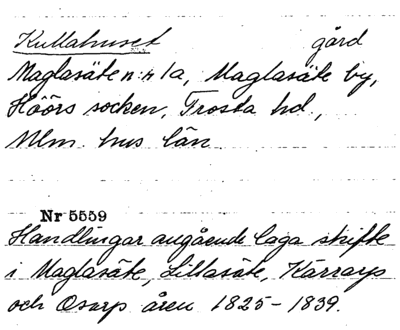 Kullahuset gård
Maglasäte n:r 1a, Maglasäte by,
Höörs socken, Frosta hd,
Mlm. hus län
Nr 5559
Handlingar angående laga skifte
i Maglasäte, Lillasäte, Kärrarp
och Osarp åren 1825-1839.